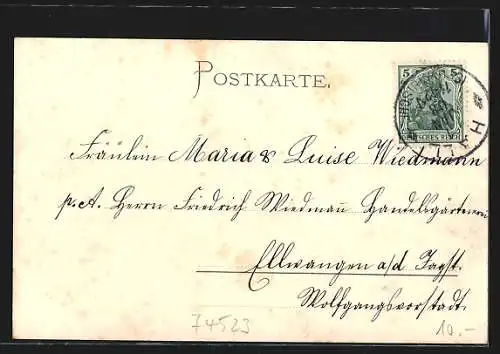 POSTKARTE.
5
DEUTSCHES REICH
HALL
Fräulein Maria & Luise Wiedmann
p. A. Herrn Friedrich Wiedmañ Handelsgärtnerei
Ellwangen a/d Jagst.
Wolfgangsvorstadt.
74523
10.-